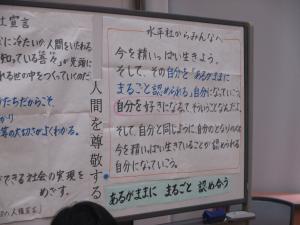 水平社からみんなへ
今を精いっぱい生きよう。
そして、その自分を「あるがままに
まるごと認められる」自分になっていこう。
自分を好きになるって、そういうことなんだよ。
そして、自分と同じように、自分のとなりの人も
今を精いっぱい生きていることが認められる
自分になっていこう。
あるがままに まるごと 認め合う
人間を尊敬する
社宣言
に冷たいか、人間をいたわる
知っている善々が先頭に
れる世の中をつくっていくのだ
たちだからこそ、
の大切さがよくわかる。
できる社会の実現を
めざす。